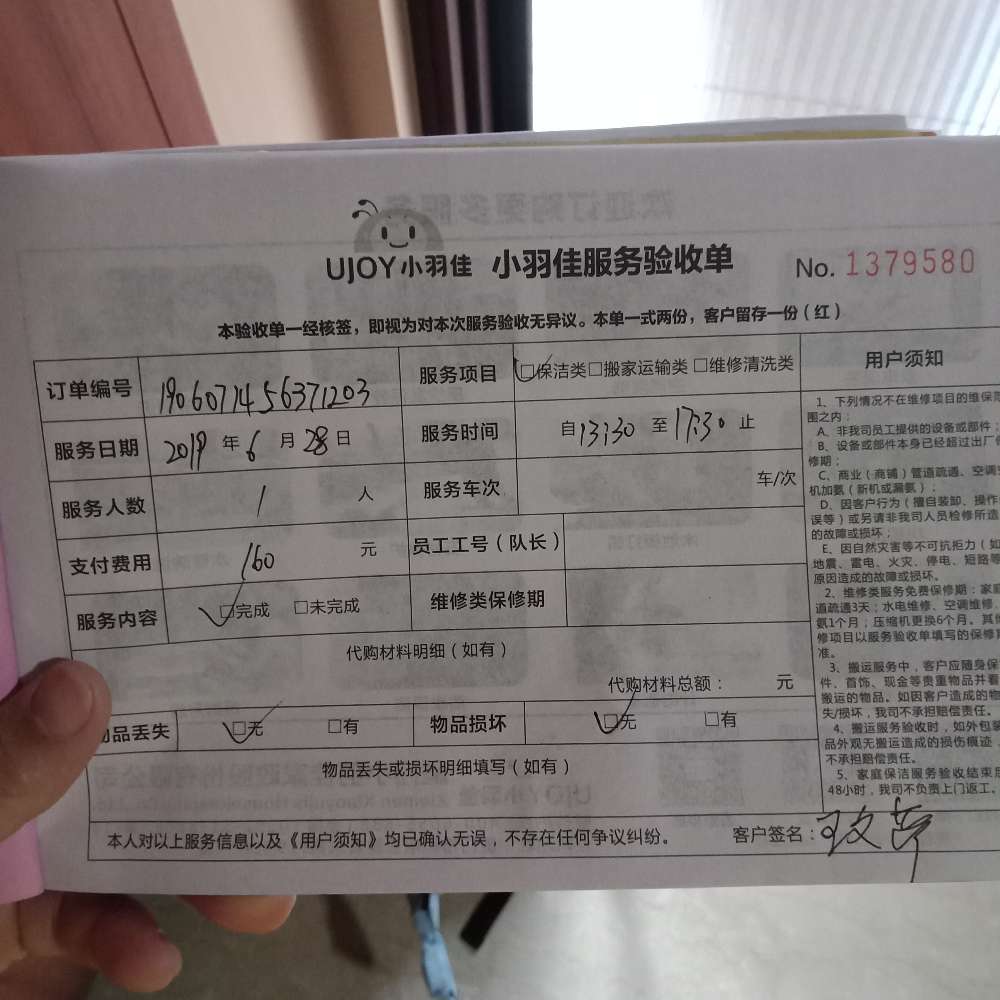 UJOY小羽佳 小羽佳服务验收单 No. 1379580
本验收单一经核签，即视为对本次服务验收无异议。本单一式两份，客户留存一份（红）
订单编号 190607145637​1203 服务项目 ☑保洁类□搬家运输类 □维修清洗类
服务日期 2019 年 6 月 28 日 服务时间 自 13:30 至 17:30 止
服务人数 1 人 服务车次 车/次
支付费用 160 元 员工工号（队长）
服务内容 ☑完成 □未完成 维修类保修期
代购材料明细（如有）
代购材料总额： 元
品丢失 ☑无 □有 物品损坏 ☑无 □有
物品丢失或损坏明细填写（如有）
本人对以上服务信息以及《用户须知》均已确认无误，不存在任何争议纠纷。 客户签名：
用户须知
1、下列情况不在维修项目的维保范
围之内：
A、非我司员工提供的设备或部件；
B、设备或部件本身已经超过出厂
修期；
C、商业（商铺）管道疏通、空调
机加氨（新机或漏氨）；
D、因客户行为（擅自装卸、操作
误等）或另请非我司人员检修所造
的故障或损坏；
E、因自然灾害等不可抗拒力（如
地震、雷电、火灾、停电、短路等
原因造成的故障或损坏。
2、维修类服务免费保修期：家庭
道疏通3天；水电维修、空调维修、
氨1个月；压缩机更换6个月。其他
修项目以服务验收单填写的保修期
准。
3、搬运服务中，客户应随身保
件、首饰、现金等贵重物品并看
搬运的物品。如因客户造成的物
失/损坏，我司不承担赔偿责任。
4、搬运服务验收时，如外包装
品外观无搬运造成的损伤痕迹，
不承担赔偿责任。
5、家庭保洁服务验收结束后
48小时，我司不负责上门返工。